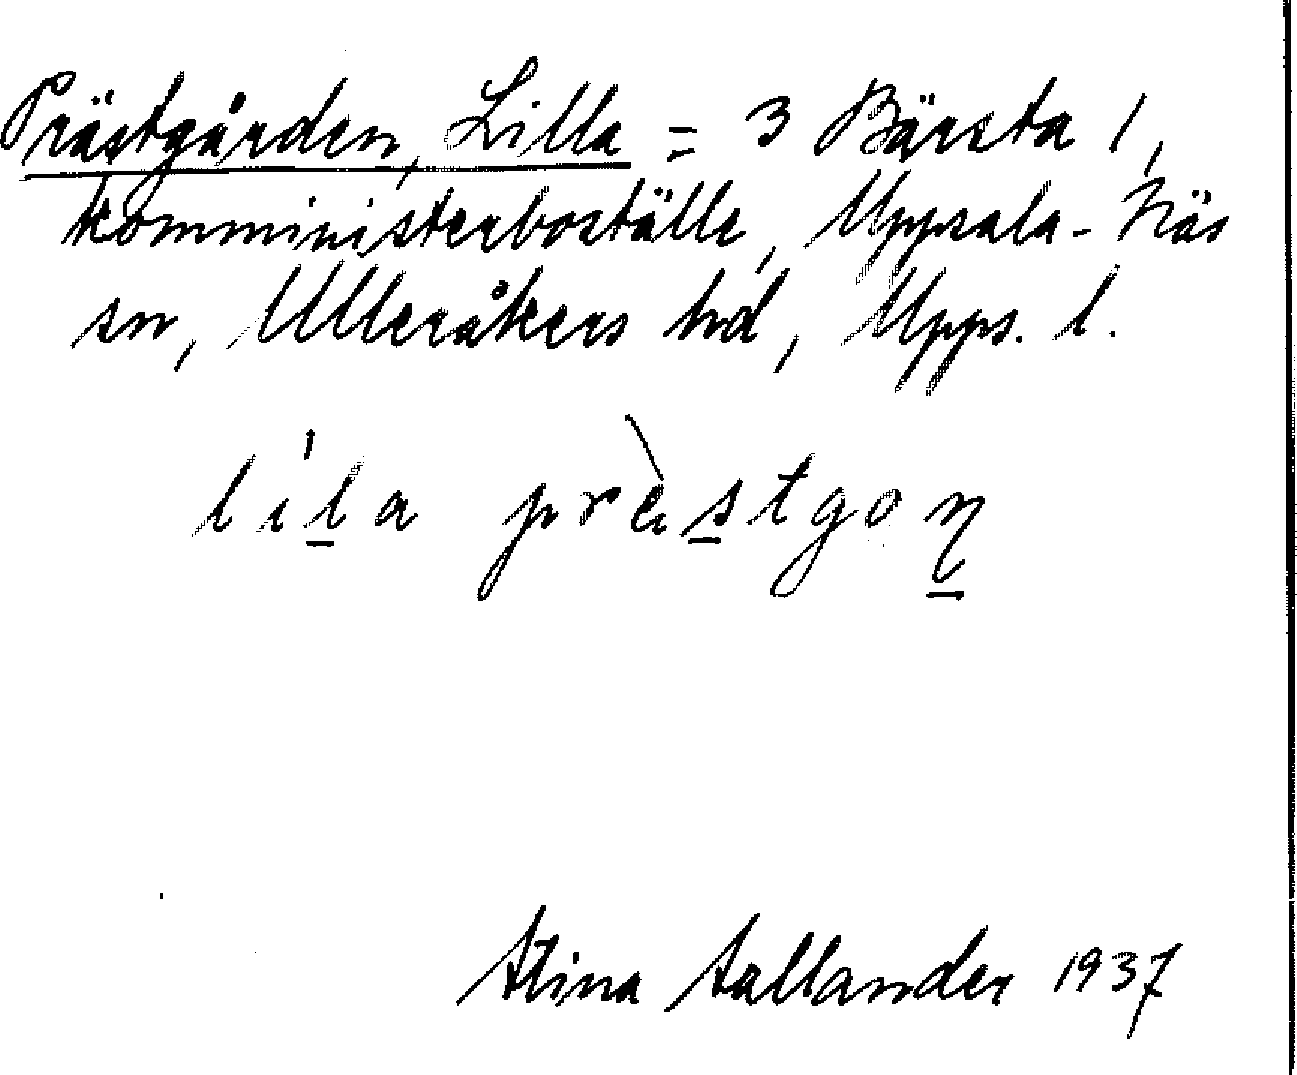 Prästgården, Lilla = 3 Bärsta 1,
komministerboställe, Uppsala-Näs
sn, Ulleråkers hd, Upps. l.
lila prèstgoɳ
Stina Sallander 1937